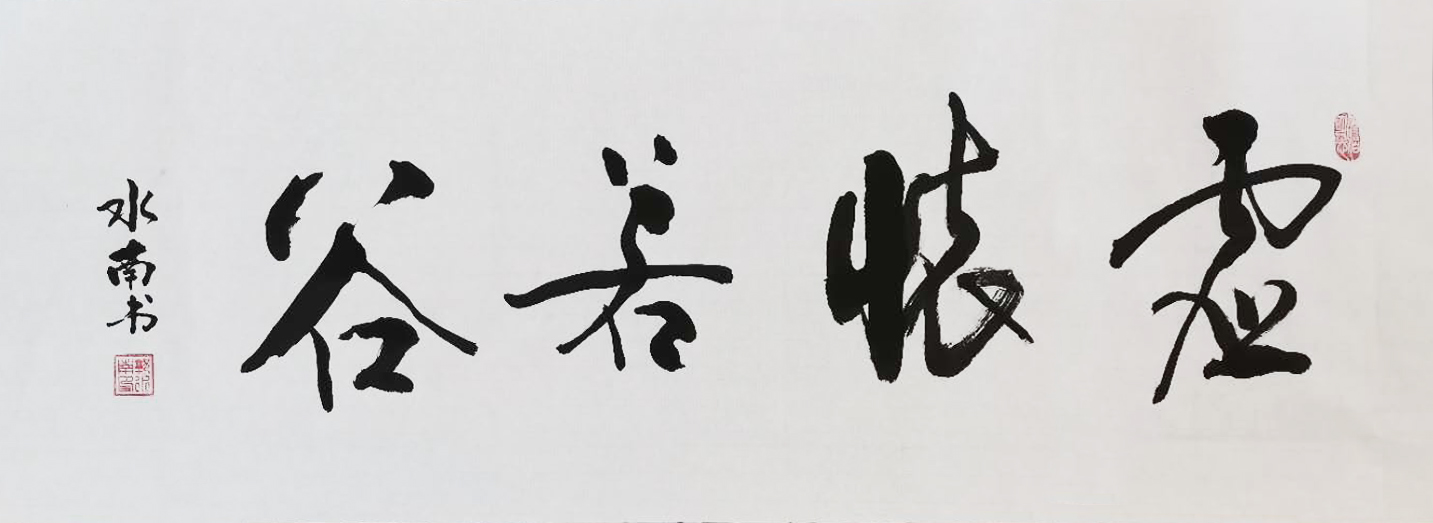 虚懷若谷
水南书